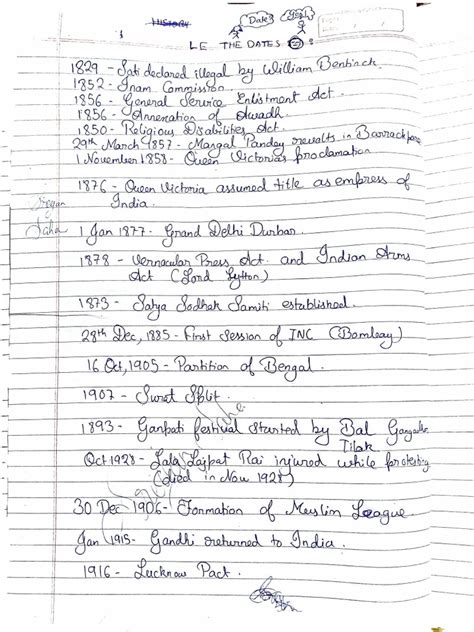 HISTORY
Date?
LE THE DATES :
1829 - Sati declared illegal by William Bentinck.
1852 - Inam Commission.
1856 - General Service Enlistment Act.
1856 - Annexation of Awadh
1850 - Religious Disabilities Act.
29th March 1857 - Mangal Pandey revolts in Barrackpore
1 November 1858 - Queen Victoria's proclamation
1876 - Queen Victoria assumed title as empress of
India.
Saha
1 Jan 1877 - Grand Delhi Durbar.
1878 - Vernacular Press Act. and Indian Arms
Act (Lord Lytton)
1873 - Satya Sodhak Samiti established.
28th Dec, 1885 - First Session of INC (Bombay)
16 Oct, 1905 - Partition of Bengal.
1907 - Surat Split.
1893 - Ganpati festival started by Bal Gangadhar
Tilak
Oct 1928 - Lala Lajpat Rai injured while protesting
(died in Nov 1928)
30 Dec 1906 - Formation of Muslim League.
Jan 1915 - Gandhi returned to India.
1916 - Lucknow Pact.